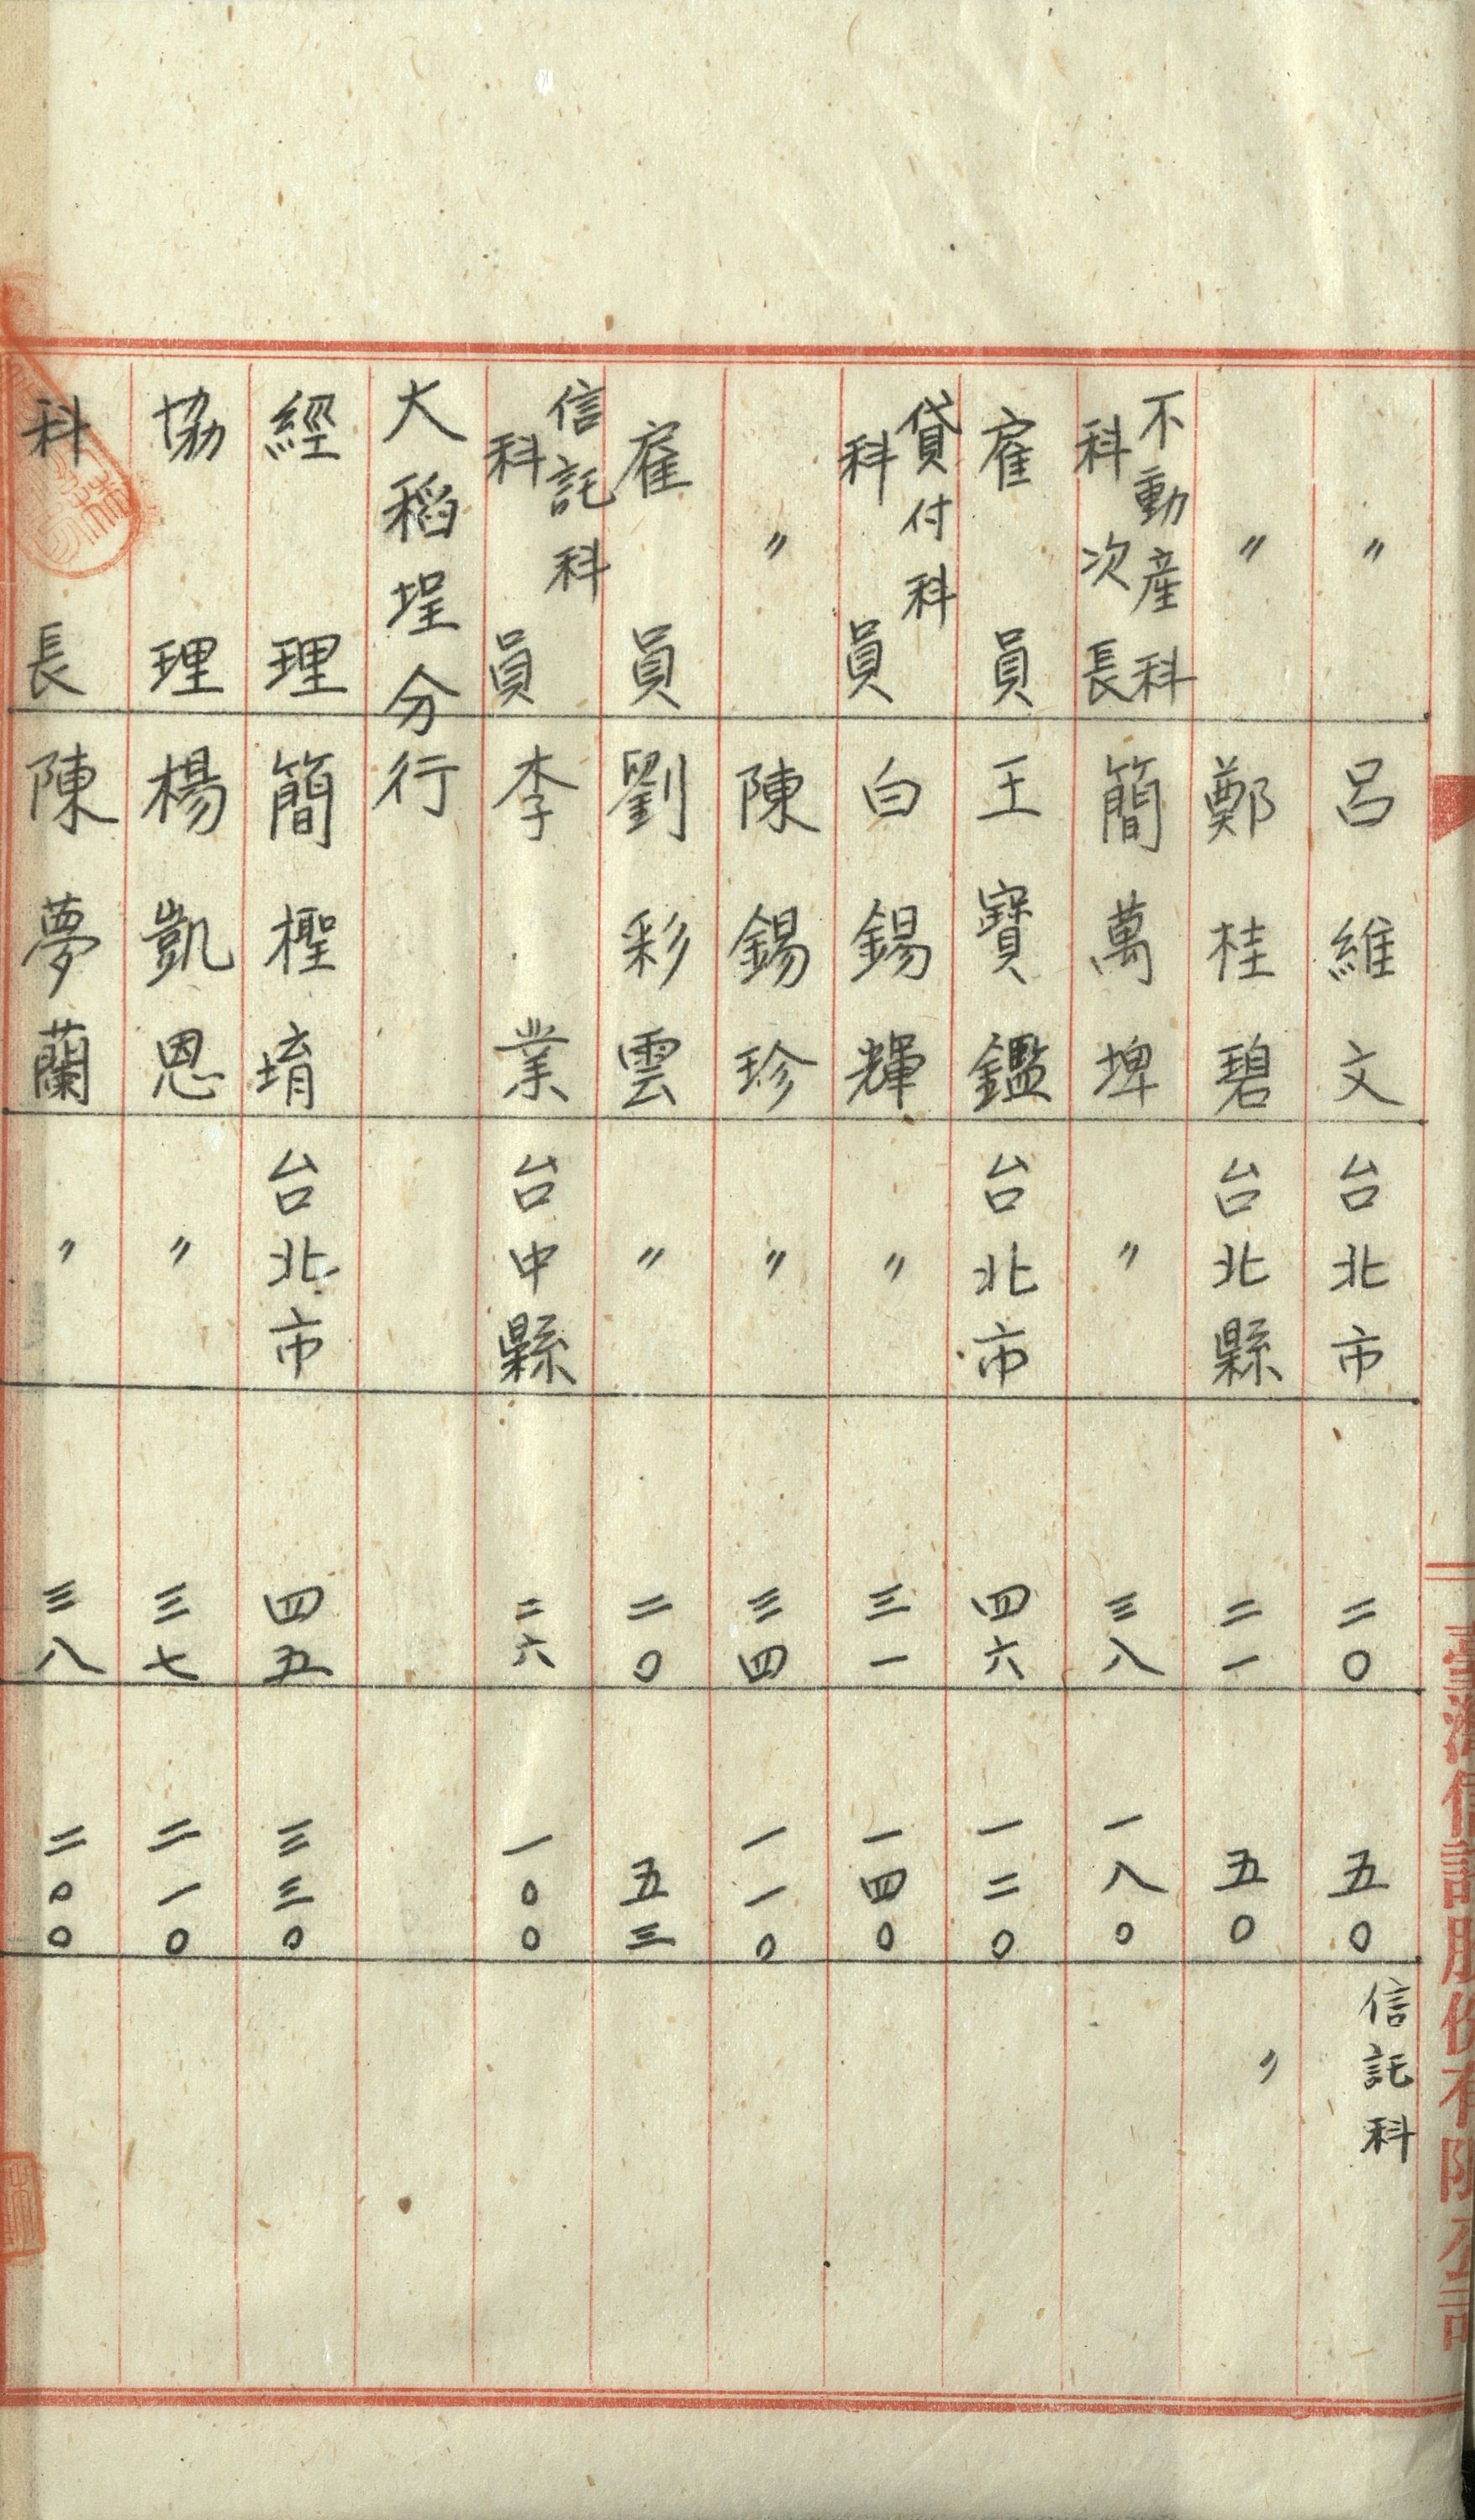 〃 呂維文 台北市 二〇 五〇 信託科
〃 鄭桂碧 台北縣 二一 五〇 〃
不動産科
科次長 簡萬埤 〃 三八 一八〇
雇員 王寶鑑 台北市 四六 一二〇
貸付科
科員 白錫輝 〃 三一 一四〇
〃 陳錫珍 〃 三四 一一〇
雇員 劉彩雲 〃 二〇 五三
信託科
科員 李業 台中縣 二六 一〇〇
大稻埕分行
經理 簡檉堉 台北市 四五 三三〇
協理 楊凱恩 〃 三七 二一〇
科長 陳夢蘭 〃 三八 二〇〇